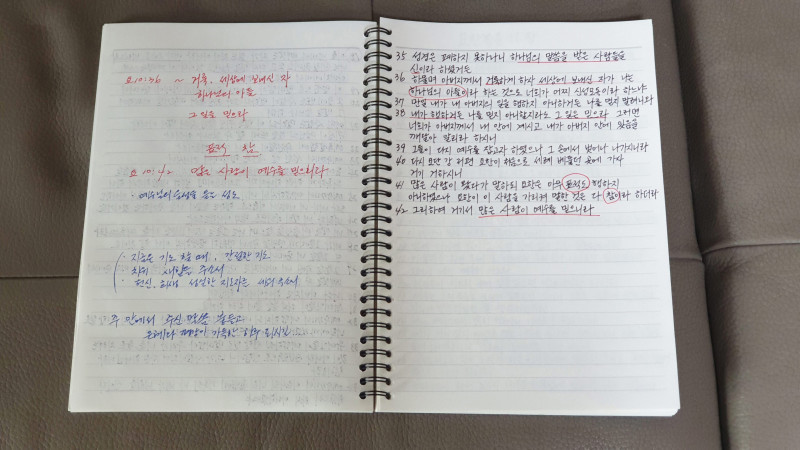 요10:36 ~ 거룩, 세상에 보내신 자
하나님의 아들
그 일은 믿으라
표적 참
요 10:42 많은 사람이 예수를 믿으니라
· 예수님의 음성을 듣는
· 지금은 기도 할 때, 간절한 기도
· 헌신,
주 안에서 주신 말씀 붙들고
35 성경은 폐하지 못하나니 하나님의 말씀을 받은 사람들을
신이라 하셨거든
36 하물며 아버지께서 거룩하게 하사 세상에 보내신 자가 나는
하나님의 아들이라 하는 것으로 너희가 어찌 신성모독이라 하느냐
37 만일 내가 내 아버지의 일을 행하지 아니하거든 나를 믿지 말려니와
38 내가 행하거든 나를 믿지 아니할지라도 그 일은 믿으라 그러면
너희가 아버지께서 내 안에 계시고 내가 아버지 안에 있음을
깨달아 알리라 하시니
39 그들이 다시 예수를 잡고자 하였으나 그 손에서 벗어나 나가시니라
40 다시 요단 강 저편 요한이 처음으로 세례 베풀던 곳에 가사
거기 거하시니
41 많은 사람이 왔다가 말하되 요한은 아무 표적도 행하지
아니하였으나 요한이 이 사람을 가리켜 말한 것은 다 참이라 하더라
42 그리하여 거기서 많은 사람이 예수를 믿으니라